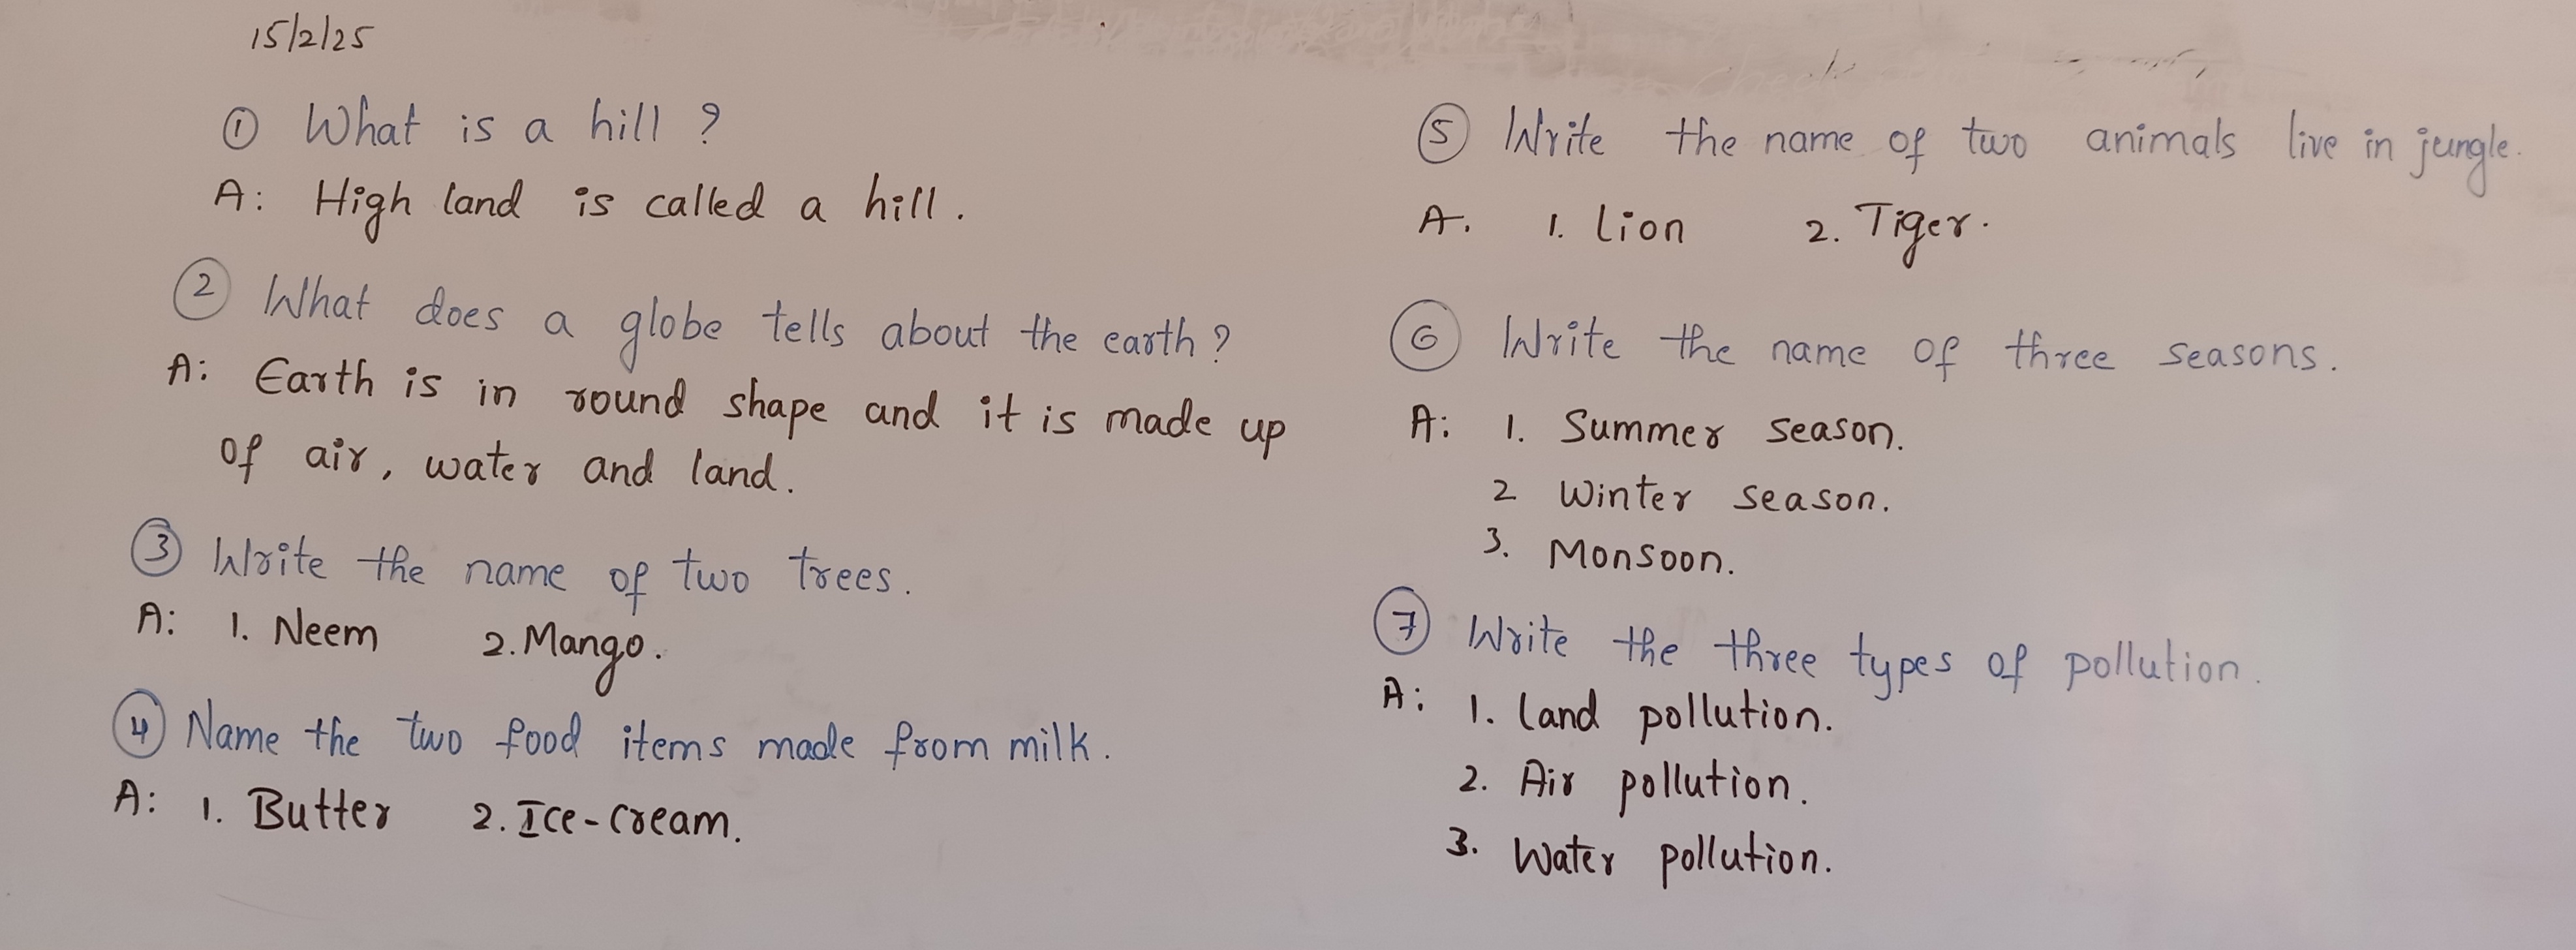 15/2/25
① What is a hill ?
A: High land is called a hill.
② What does a globe tells about the earth?
A: Earth is in round shape and it is made up
of air, water and land.
③ Write the name of two trees.
A: 1. Neem 2. Mango.
④ Name the two food items made from milk.
A: 1. Butter 2. Ice-cream.
⑤ Write the name of two animals live in jungle.
A. 1. Lion 2. Tiger.
⑥ Write the name of three seasons.
A: 1. Summer season.
2 Winter season.
3. Monsoon.
⑦ Write the three types of pollution.
A: 1. Land pollution.
2. Air pollution.
3. Water pollution.